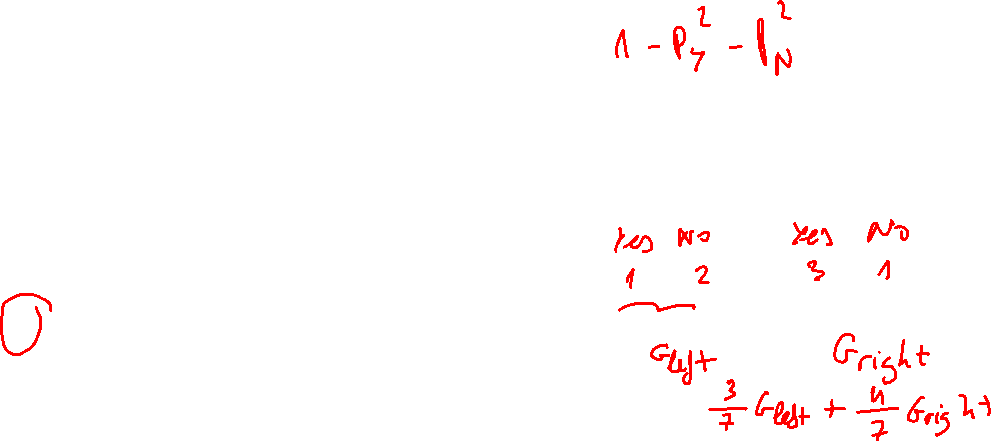 1 - P_Y^2 - P_N^2
Yes No Yes No
1 2 3 1
0
Gleft Gright
3/7 Gleft + 4/7 Gright